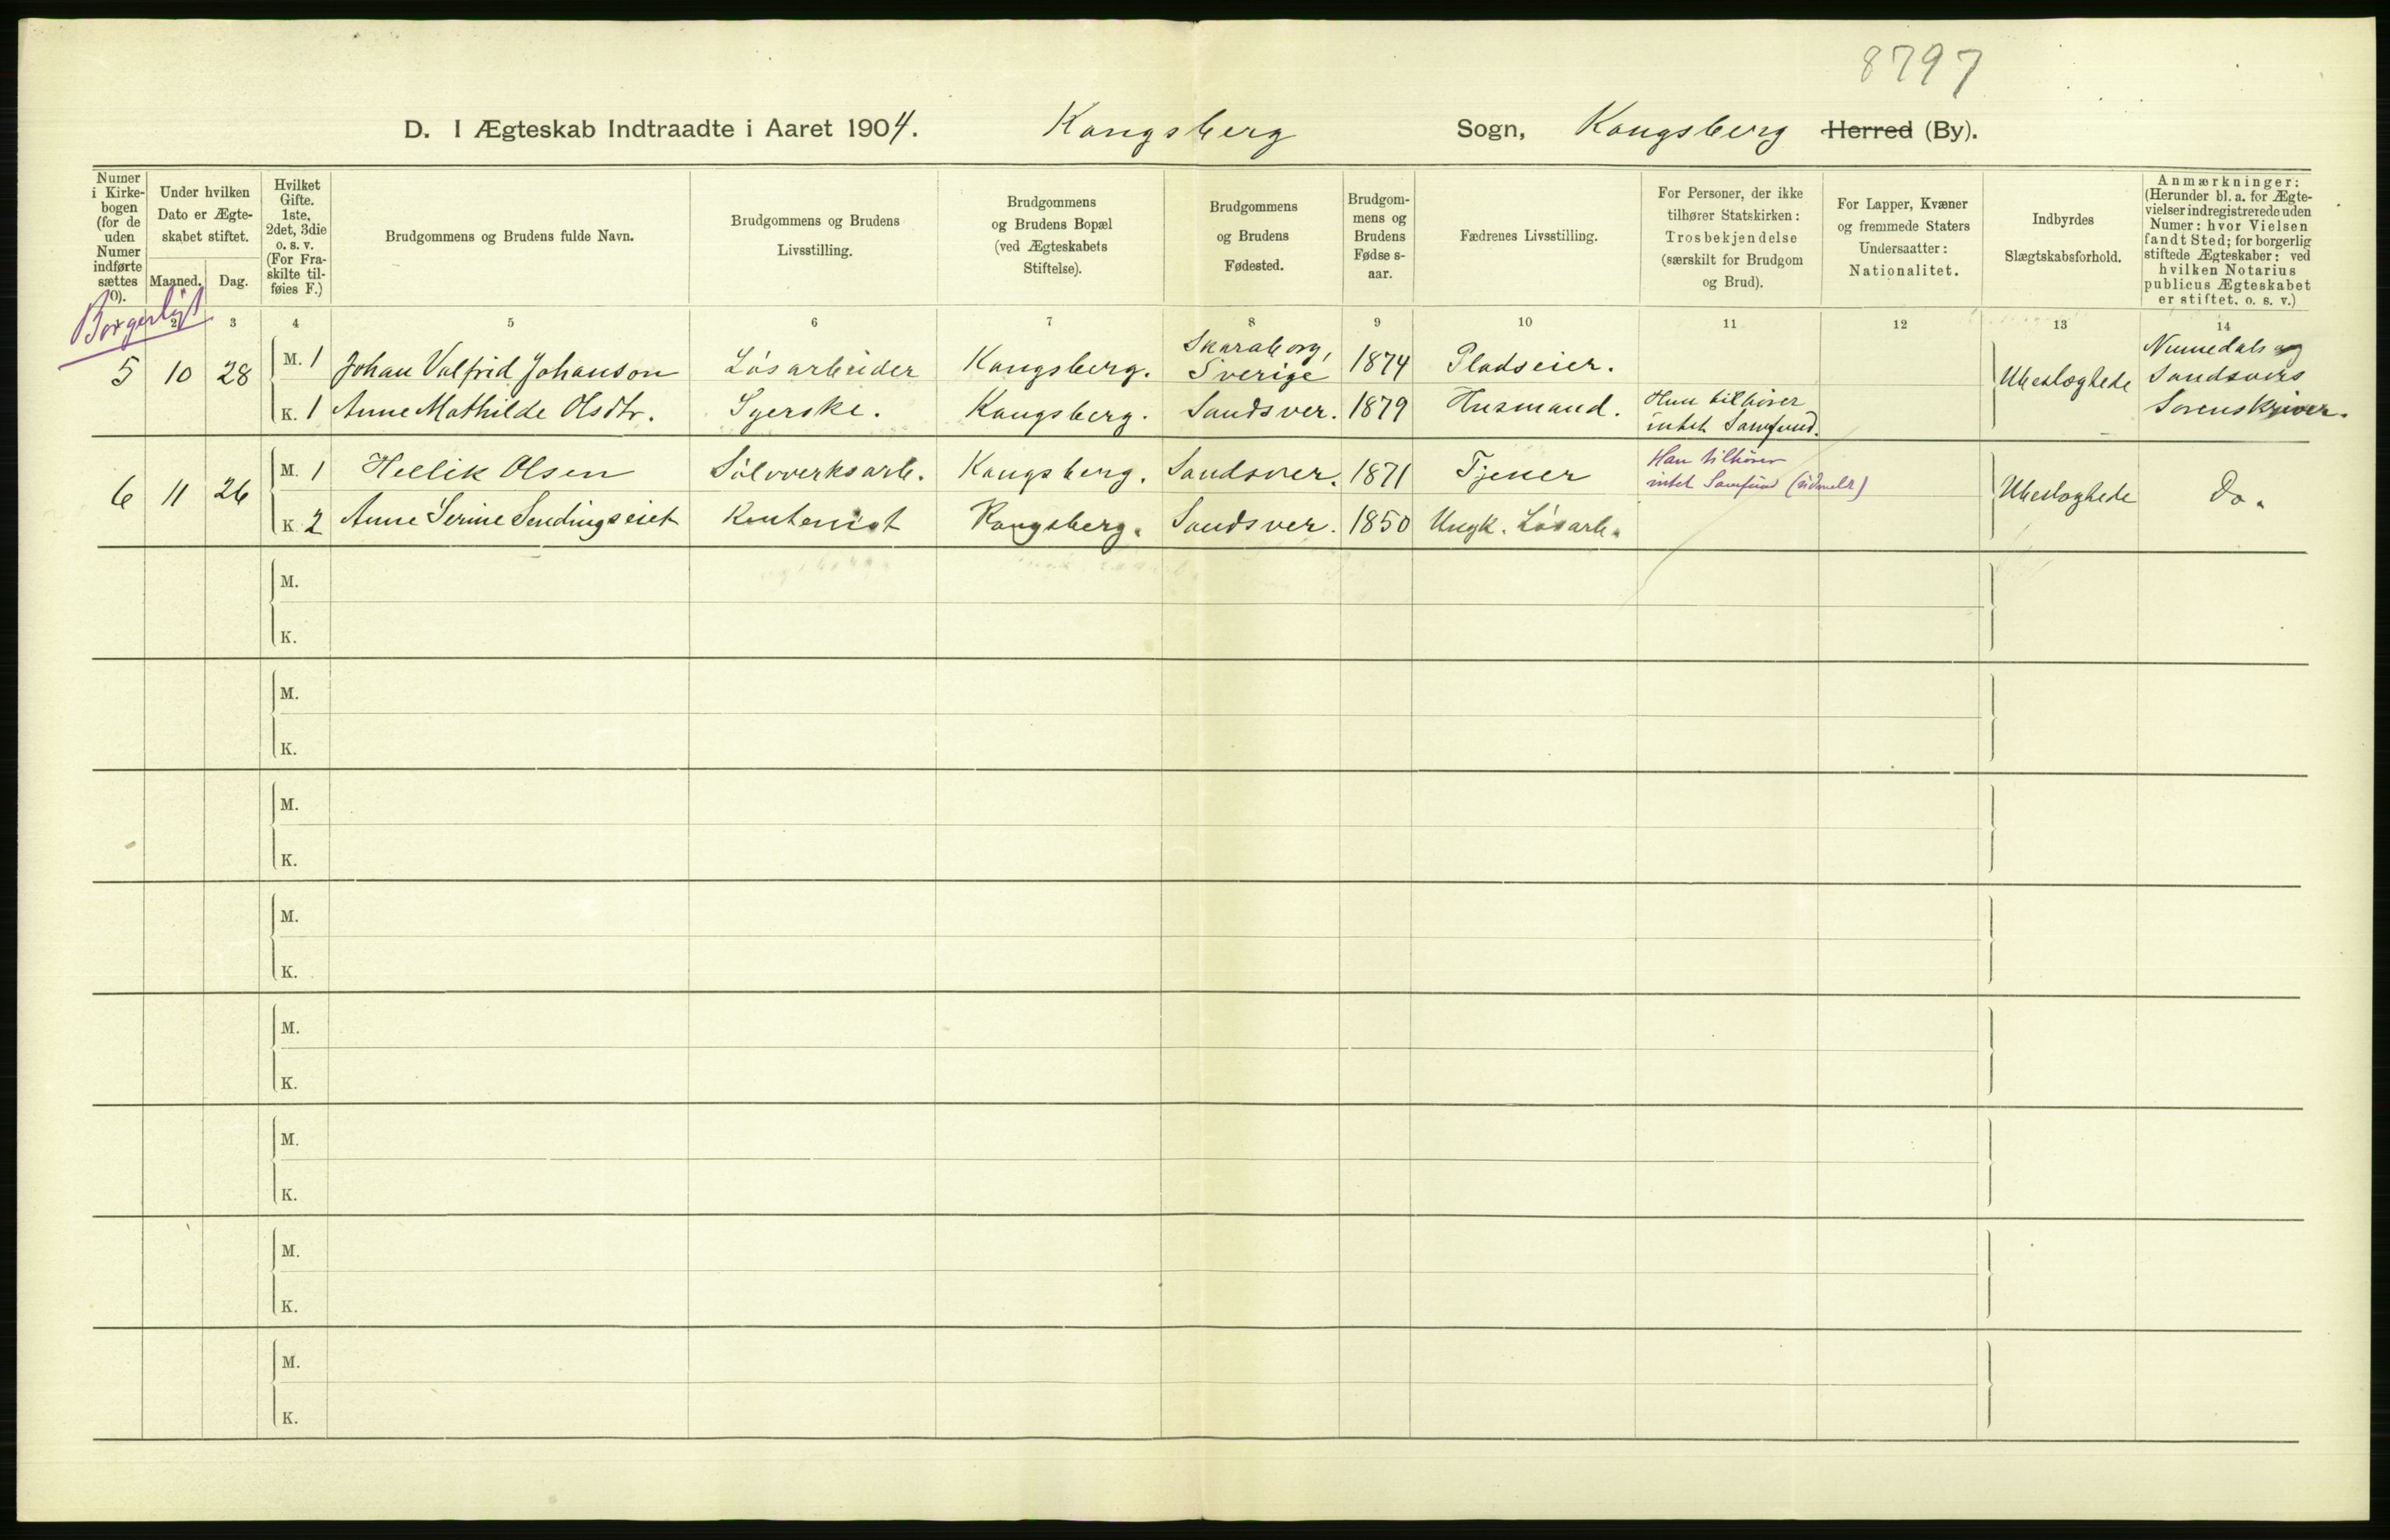 8797
D. I Ægteskab Indtraadte i Aaret 1904. Kongsberg Sogn, Kongsberg Herred (By).
Numer i Kirke-bogen (for de uden Numer indførte sættes 0).
Under hvilken Dato er Ægte-skabet stiftet.
Maaned. Dag.
Hvilket Gifte. 1ste, 2det, 3die o. s. v. (For Fra-skilte til-føies F.)
Brudgommens og Brudens fulde Navn.
Brudgommens og Brudens Livsstilling.
Brudgommens og Brudens Bopæl (ved Ægteskabets Stiftelse).
Brudgommens og Brudens Fødested.
Brudgom-mens og Brudens Fødse s-aar.
Fædrenes Livsstilling.
For Personer, der ikke tilhører Statskirken: Trosbekjendelse (særskilt for Brudgom og Brud).
For Lapper, Kvæner og fremmede Staters Undersaatter: Nationalitet.
Indbyrdes Slægtskabsforhold.
Anmærkninger: (Herunder bl. a. for Ægte-vielser indregistrerede uden Numer: hvor Vielsen fandt Sted; for borgerlig stiftede Ægteskaber: ved hvilken Notarius publicus Ægteskabet er stiftet. o. s. v.)
Borgerligt
2 3 4 5 6 7 8 9 10 11 12 13 14
5 10 28 M. 1 Johan Valfrid Johanson Løsarbeider Kongsberg. Skaraborg, Sverige 1874 Pladseier. Ubeslægtede Numedals og Sandsvers Sorenskriver.
K. 1 Anne Mathilde Olsdtr. Syerske. Kongsberg. Sandsver. 1879 Husmand. Hun tilhører intet Samfund.
6 11 26 M. 1 Hellik Olsen Sølvverksarb. Kongsberg. Sandsver. 1871 Tjener Han tilhører intet Samfund (udmeldt) Ubeslægtede Do.
K. 2 Anne Serine Sendingseiet Kontenist Kongsberg. Sandsver. 1850 Ungk. Løsarb.
M.
K.
M.
K.
M.
K.
M.
K.
M.
K.
M.
K.
M.
K.
M.
K.